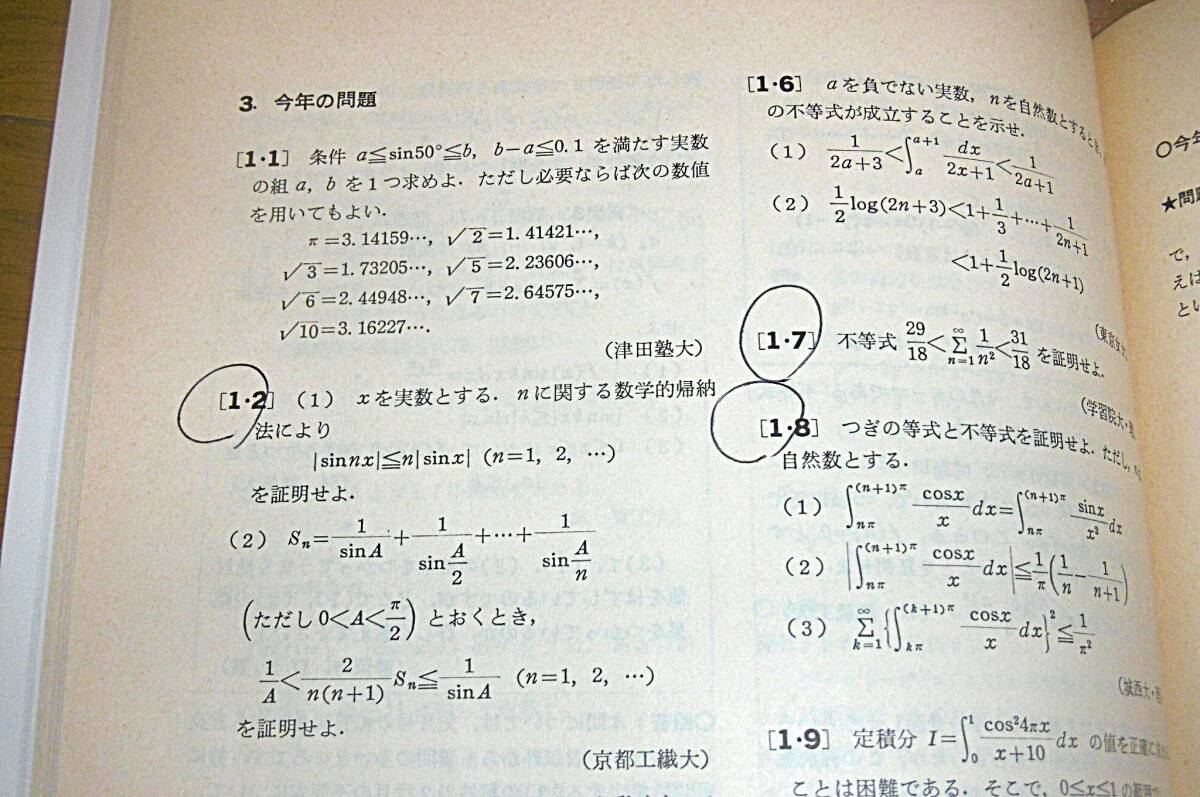 3. 今年の問題
[1・1] 条件 a≦sin50°≦b, b−a≦0.1 を満たす実数
の組 a, b を1つ求めよ. ただし必要ならば次の数値
を用いてもよい.
π=3.14159…, √2=1.41421…,
√3=1.73205…, √5=2.23606…,
√6=2.44948…, √7=2.64575…,
√10=3.16227….
(津田塾大)
[1・2] (1) xを実数とする. nに関する数学的帰納
法により
|sinnx|≦n|sinx| (n=1, 2, …)
を証明せよ.
(2) Sn=1/sinA+1/sin(A/2)+…+1/sin(A/n)
(ただし 0<A<π/2) とおくとき,
1/A<2/n(n+1) Sn≦1/sinA (n=1, 2, …)
を証明せよ.
(京都工繊大)
[1・6] aを負でない実数, nを自然数とするとき,
の不等式が成立することを示せ.
(1) 1/(2a+3)<∫_a^{a+1} dx/(2x+1)<1/(2a+1)
(2) 1/2 log(2n+3)<1+1/3+…+1/(2n+1)
<1+1/2 log(2n+1)
(東京女大
[1・7] 不等式 29/18<Σ_{n=1}^∞ 1/n²<31/18 を証明せよ.
(学習院大・
[1・8] つぎの等式と不等式を証明せよ. ただし,
自然数とする.
(1) ∫_{nπ}^{(n+1)π} cosx/x dx=∫_{nπ}^{(n+1)π} sinx/x² dx
(2) |∫_{nπ}^{(n+1)π} cosx/x dx|≦1/π(1/n−1/(n+1))
(3) Σ_{k=1}^∞{∫_{kπ}^{(k+1)π} cosx/x dx}²≦1/π²
(城西大・
[1・9] 定積分 I=∫_0^1 cos²4πx/(x+10) dx の値を正確に
ことは困難である. そこで, 0≦x≦1の範囲で
○今年
★問題
で,
えば
と